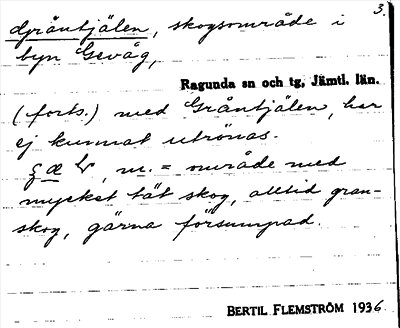 3.
Gråntjälen, skogsområde i
byn Gevåg,
Ragunda sn och tg, Jämtl. län.
(forts.) med Gråntjälen, har
ej kunnat utrönas.
m. = område med
mycket tät skog, alltid gran-
skog, gärna försumpad.
BERTIL FLEMSTRÖM 1936